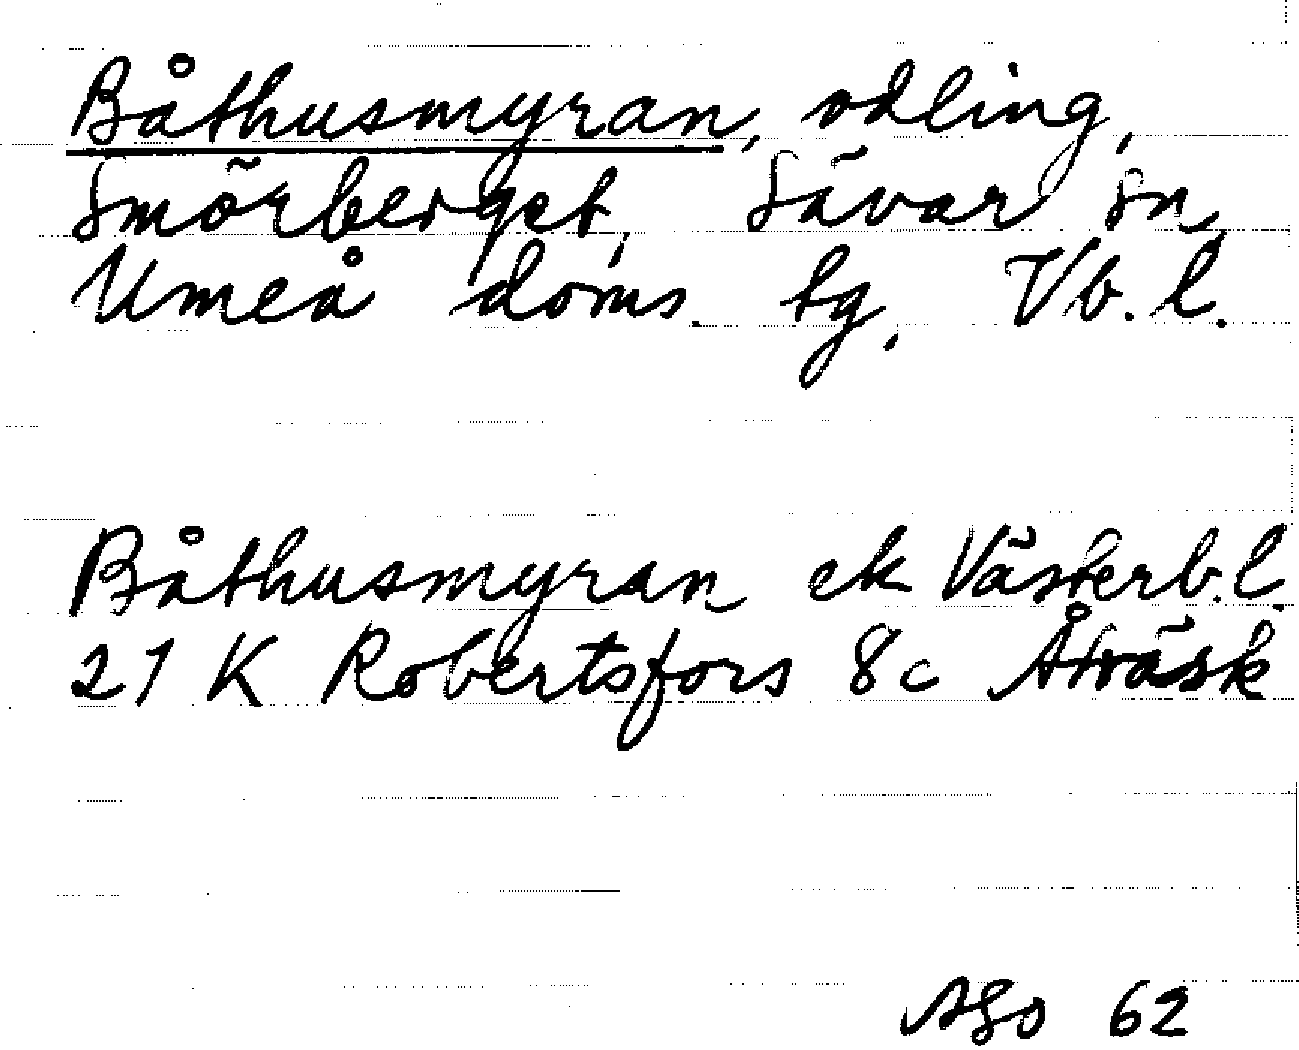 Båthusmyran, odling,
Smörberget, Sävar sn,
Umeå doms. tg, Vb. l.
Båthusmyran ek Västerb.l.
21 K Robertsfors 8c Åträsk
ASo 62